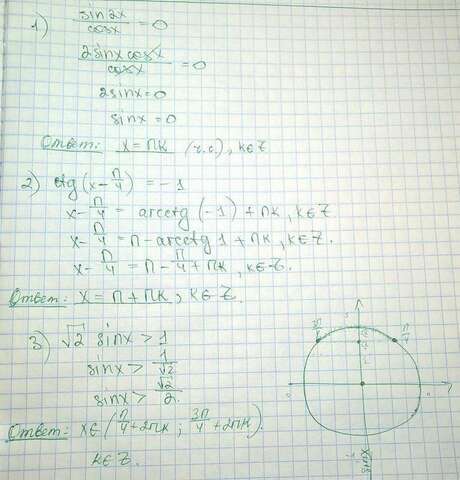 1) sin2x/cosx = 0
2sinx cosx/cosx = 0
2sinx=0
sinx=0
Ответ: x = πk (ч.с.), k∈Z
2) ctg(x-π/4) = -1
x-π/4 = arcctg (-1) + πk, k∈Z
x-π/4 = π-arcctg 1 + πk, k∈Z.
x-π/4 = π-π/4+πk, k∈Z.
Ответ: x = π+πk, k∈Z.
3) √2 sinx > 1
sinx > 1/√2
sinx > √2/2.
Ответ: x∈(π/4+2πk; 3π/4+2πk).
k∈Z.
π/4
0